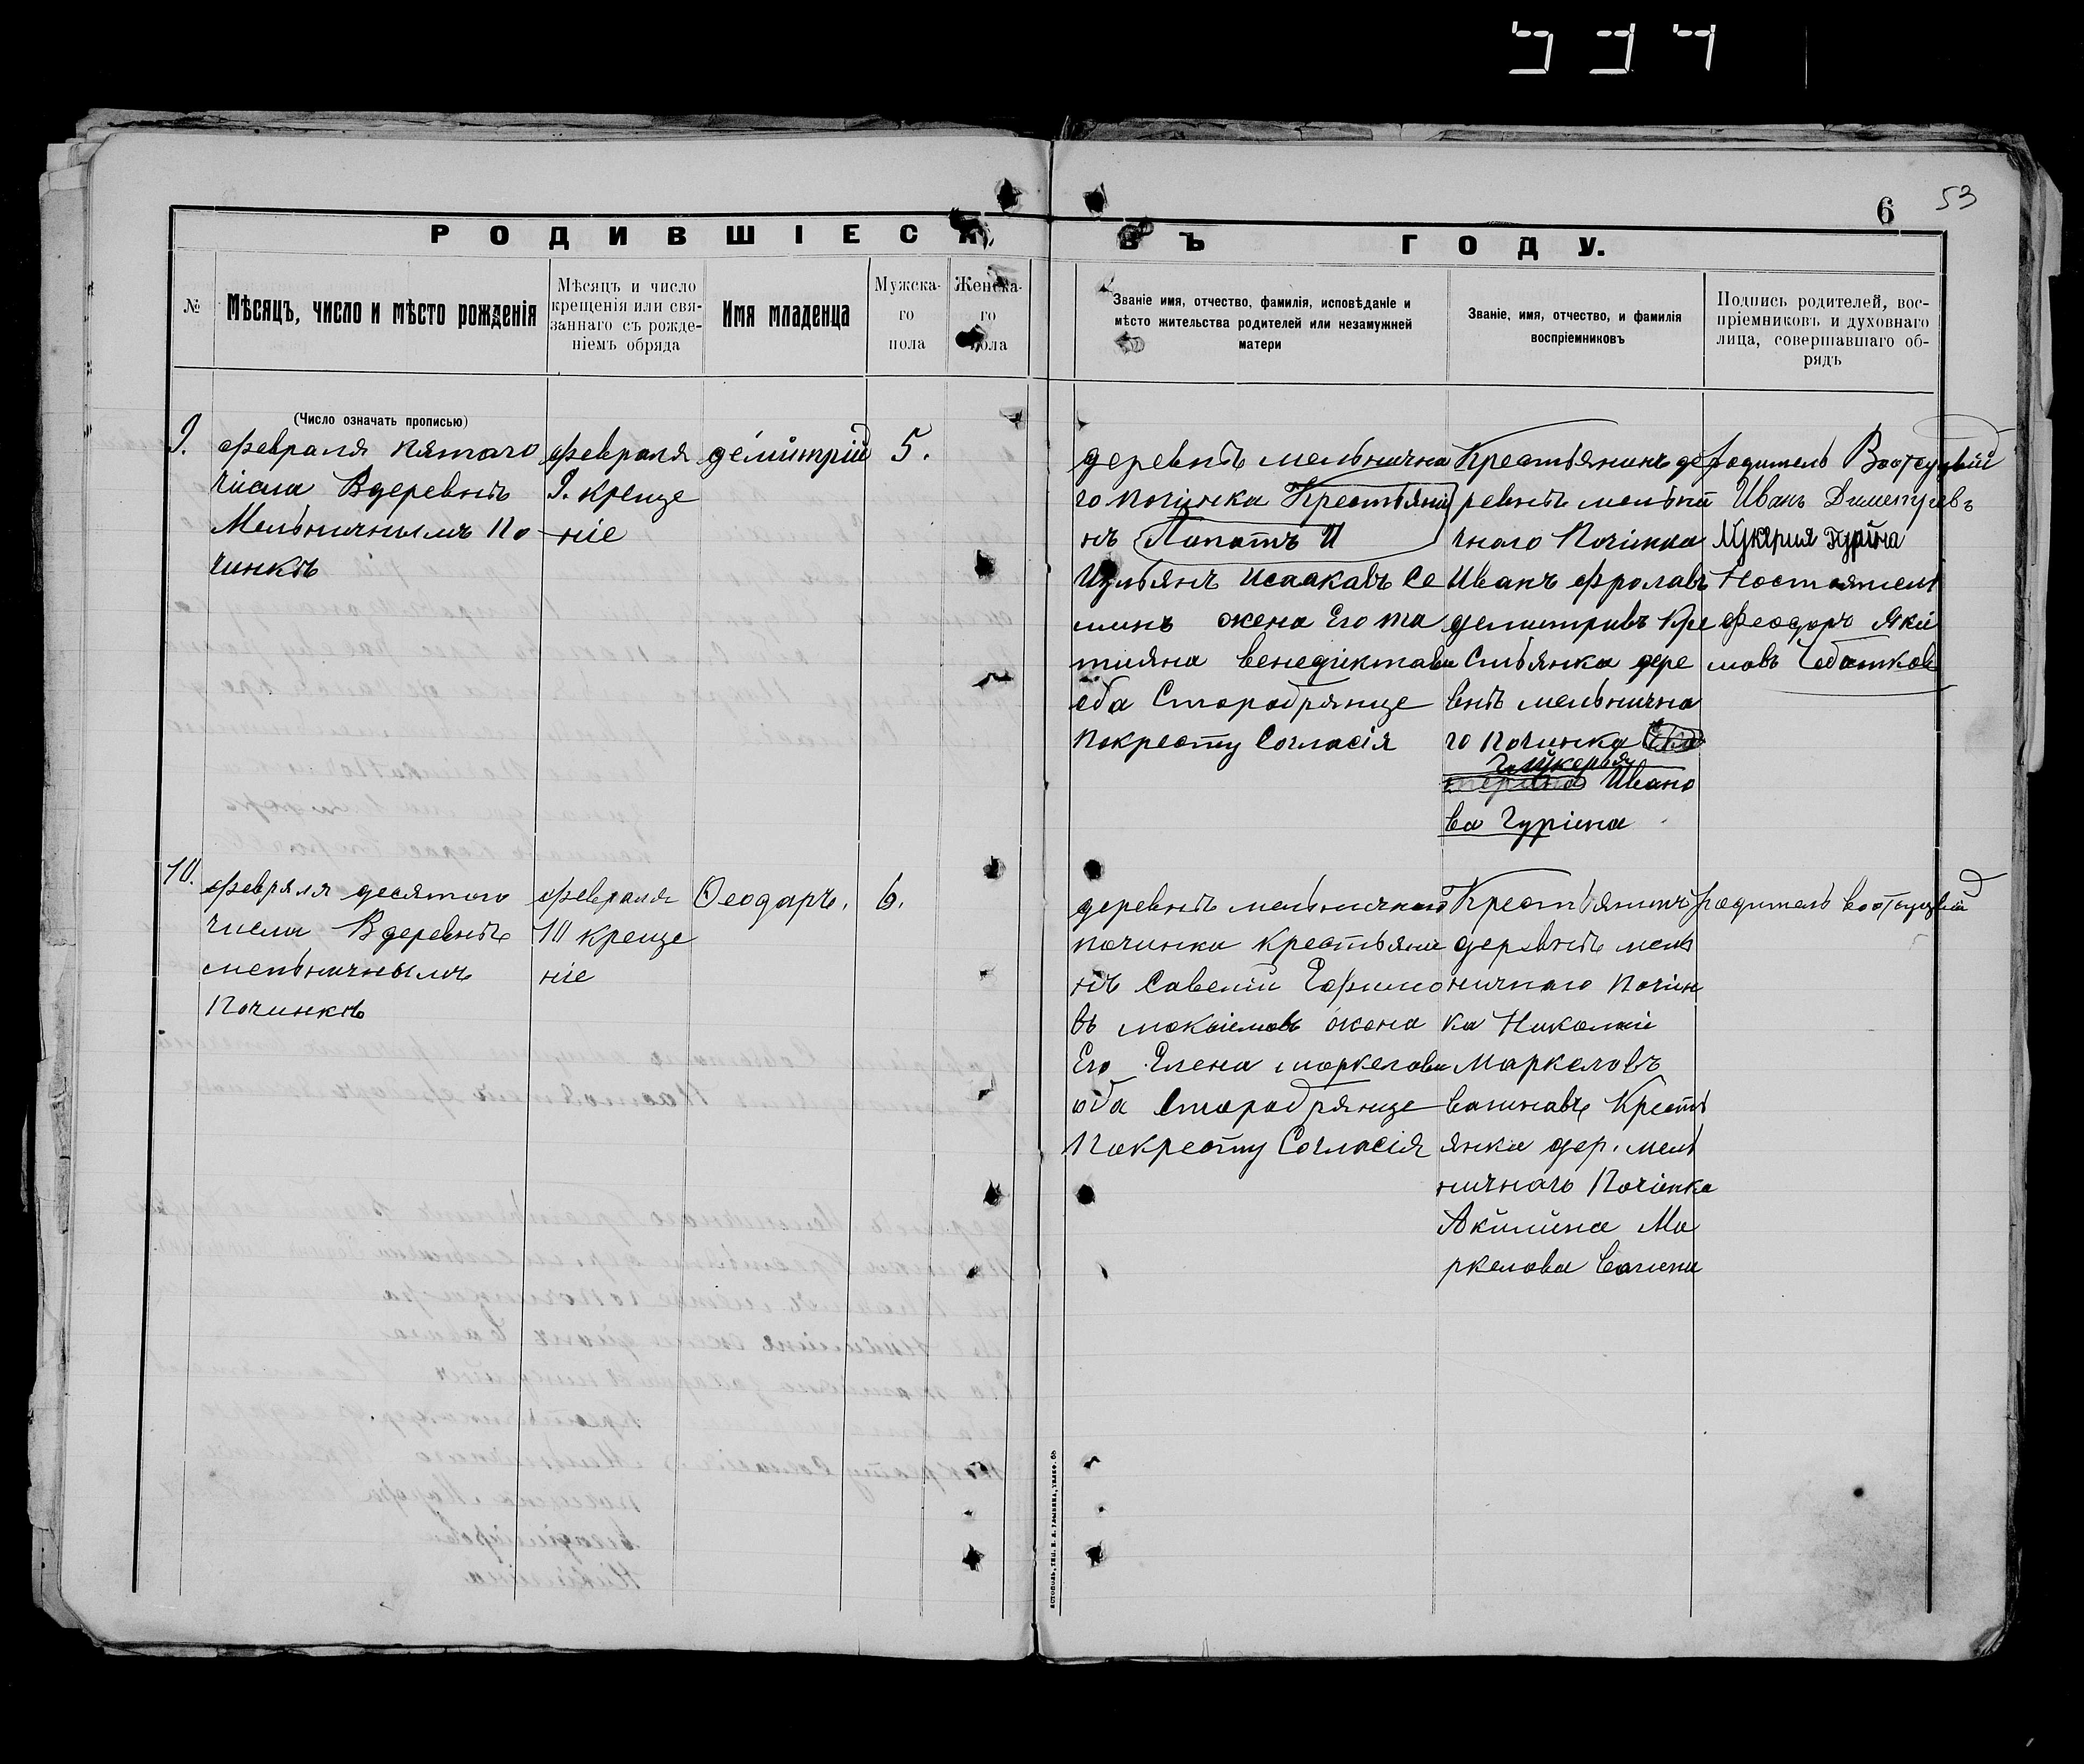 6 53
РОДИВШІЕСЯ ВЪ ГОДУ.
№
Мѣсяцъ, число и мѣсто рожденія
Мѣсяцъ и число
крещенія или свя-
заннаго съ рожде-
ніемъ обряда
Имя младенца
Мужска-
го
пола
Женска-
го
пола
Званіе имя, отчество, фамилія, исповѣданіе и
мѣсто жительства родителей или незамужней
матери
Званіе, имя, отчество, и фамилія
воспріемниковъ
Подпись родителей, вос-
пріемниковъ и духовнаго
лица, совершавшаго об-
рядъ
(Число означать прописью)
9.
февраля пятаго
числа Вдеревнѣ
Мельничнымъ По
чинкѣ
февраля
9. креще
ніе
демитрій
5.
деревнѣ мельнична
го почінка Крестьяни
нъ
Исаакавъ Се
минъ жена Его та
тияна венедіктава
оба Старобрянце
Покресту Согласія
Крестьянинъ де
ревнѣ мельни
чнаго Почінка
Иванъ фролавъ
демитривъ Кре
стьянка дере
внѣ мельнична
го Починка
Гликерья
Ивано
ва Гуріна
родитель
Иванъ Димитривъ
Лукярия Гурина
Настоятель
Феодоръ Яки
мовъ
10.
февряля десятаго
числа Вдеревнѣ
мельничнымъ
Починкѣ
февраля
10 креще
ніе
Ѳеодаръ.
6.
деревнѣ мельничнаго
починка крестьяни
нъ Савелій Ефимо
въ жена
Его Елена маркелова
оба Старобрянце
Покресту Согласія
Крестьянинъ
деревнѣ мель
ничнаго Почин
ка Николай
Маркеловъ
вагинавъ Кресть
янка дер. мель
ничнаго Почінка
Акилина Ма
ркелова Вагина
родитель